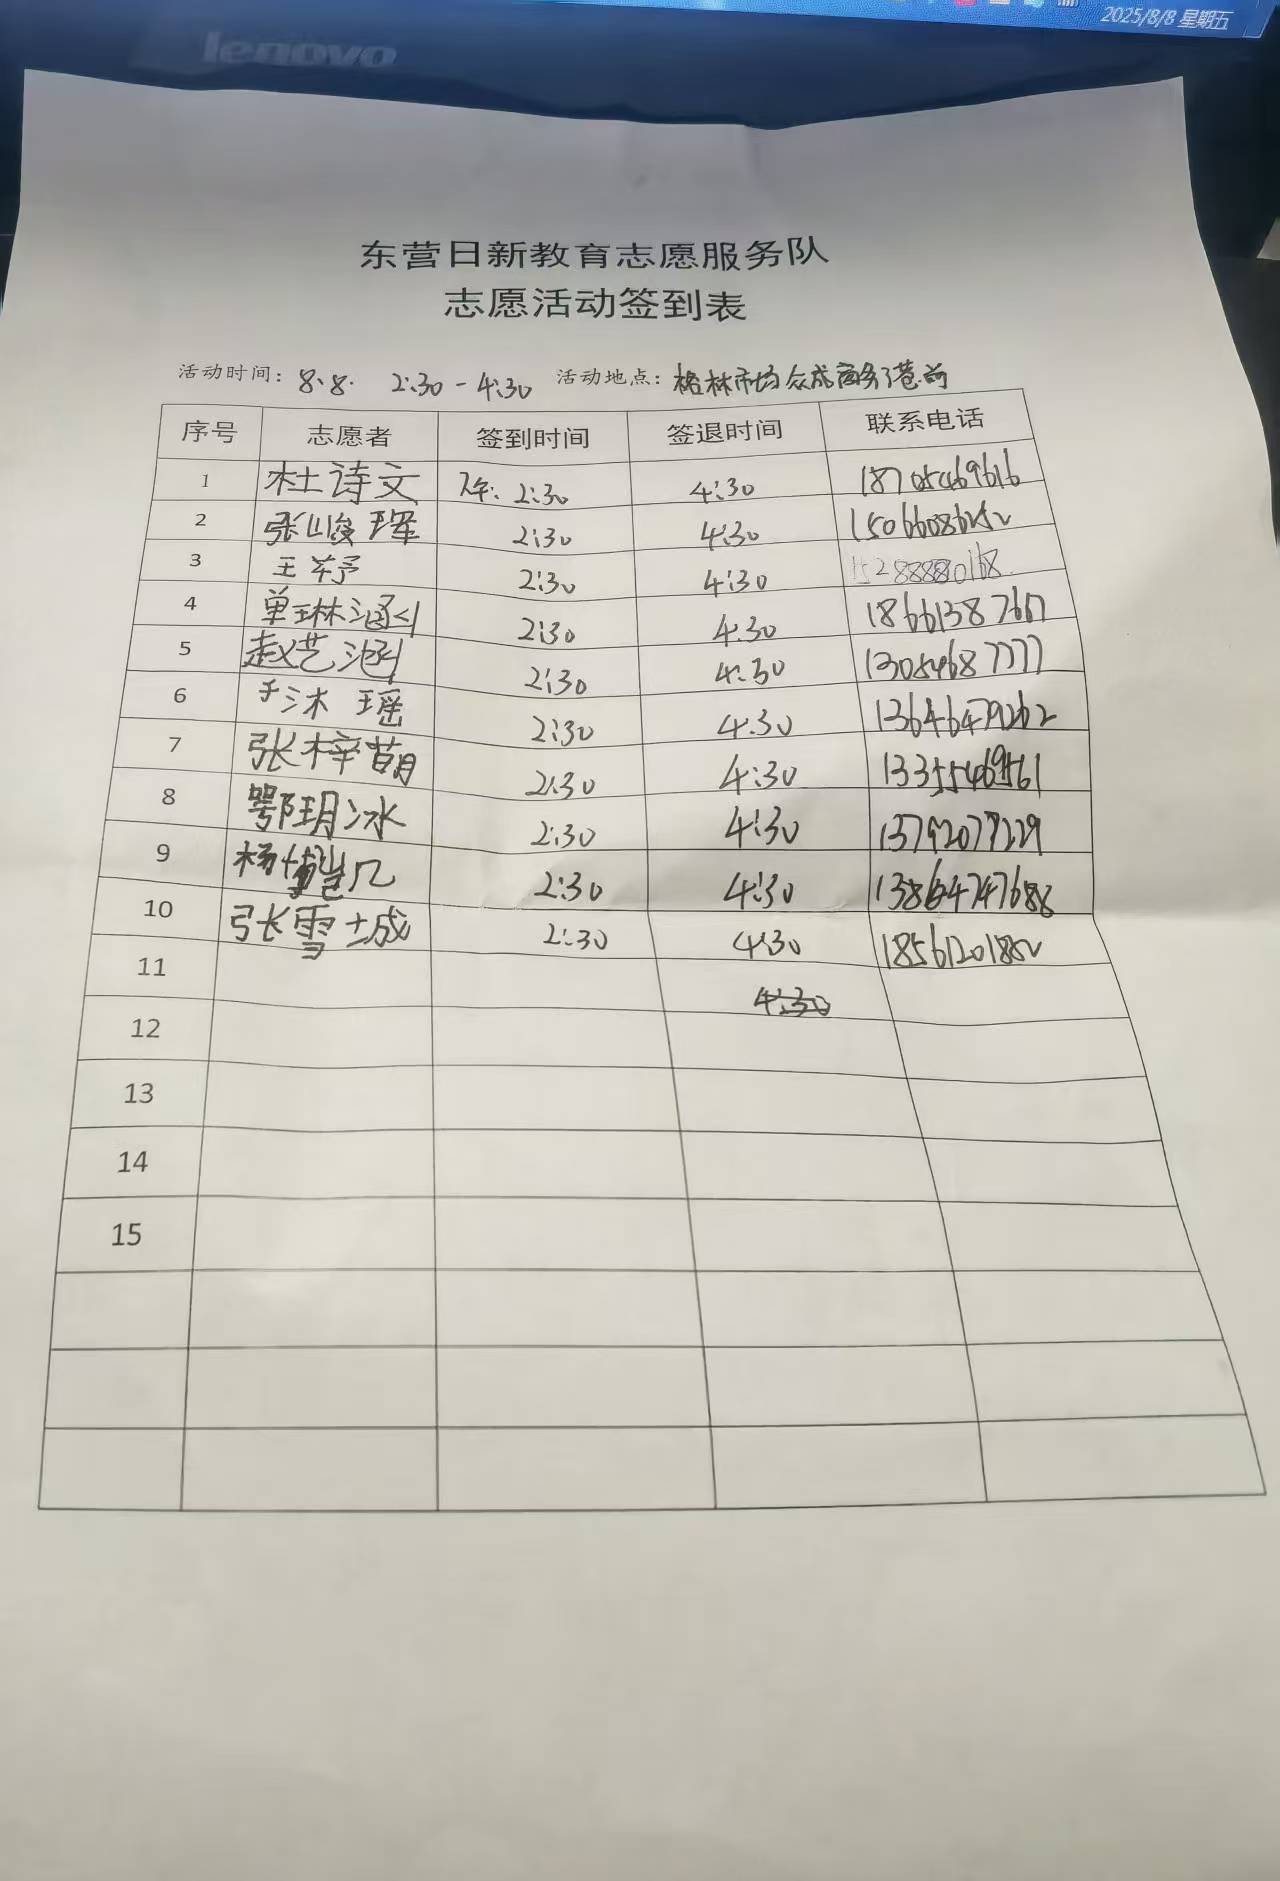 2025/8/8 星期五
lenovo
东营日新教育志愿服务队
志愿活动签到表
活动时间：8.8. 2:30-4:30 活动地点：格林市场众成商务港前
序号 志愿者 签到时间 签退时间 联系电话
1 杜诗文 下午：2:30 4:30 18705469616
2 张峻瑾 2:30 4:30
3 王 2:30 4:30
4 单琳涵 2:30 4:30
5 赵艺涵 2:30 4:30 13054687777
6 于沐瑶 2:30 4:30 13646479262
7 张梓萌 2:30 4:30 13355469561
8 鄂玥冰 2:30 4:30 13792079229
9 杨 几 2:30 4:30 13864747688
10 张雪城 2:30 4:30
11 4:30
12
13
14
15